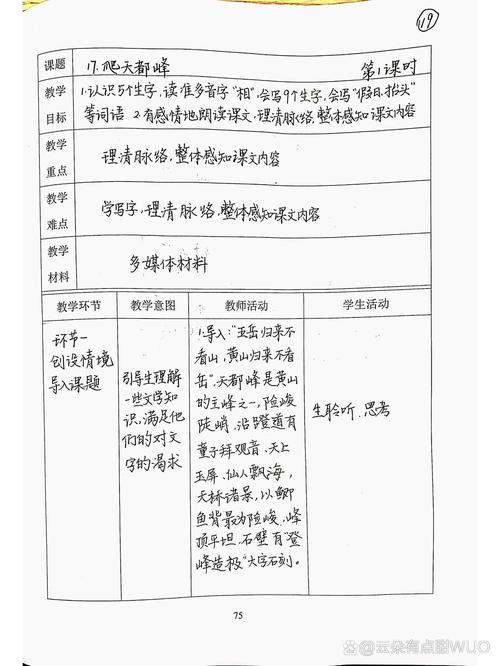 19
课题 17.爬天都峰 第1课时
教学
目标
1.认识5个生字,读准多音字"相",会写9个生字,会写"假日、抬头"
等词语 2.有感情地朗读课文,理清脉络,整体感知课文内容
教学
重点
理清脉络,整体感知课文内容
教学
难点
学写字,理清脉络,整体感知课文内容
教学
材料
多媒体材料
教学环节 教学意图 教师活动 学生活动
环节一
创设情境
导入课题
引导生理解
一些文学知
识,满足他
们的对文
字的渴求
1.导入:"五岳归来不
看山,黄山归来不看
岳"。天都峰是黄山
的主峰之一,险峻
陡峭,沿蹬道有
童子拜观音、天上
玉屏、仙人飘海,
天桥诸景,以鲫
鱼背最为险峻,峰
顶平坦,石壁有"登
峰造极"大字石刻。
生聆听、思考
75
@云朵有点甜WUO